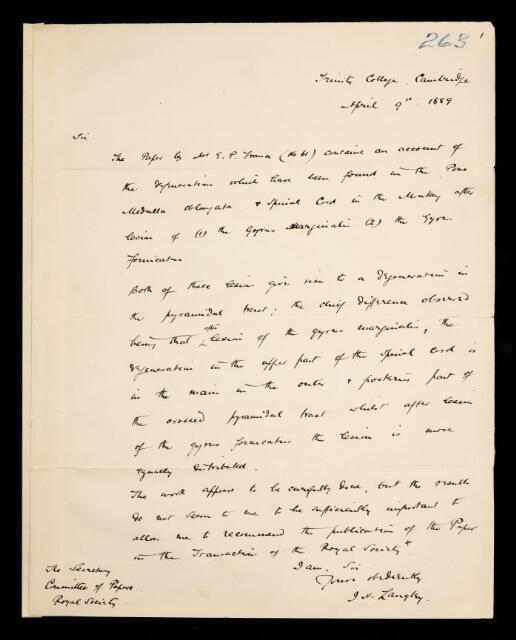 263
Trinity College. Cambridge
April 9th 1889
Sir.
The Paper by Mr E. P. France (No 61) contains an account of
the degenerations which have been found in the Pons
Medulla oblongata & Spinal Cord in the Monkey after
lesion of (1) the Gyrus Marginalis (2) the Gyrus
fornicatus
Both of these lesions give rise to a degeneration in
the pyramidal tract; the chief difference observed
being that after lesion of the gyrus marginalis, the
degeneration in the upper part of the Spinal Cord is
in the main in the outer & posterior part of
the crossed pyramidal tract whilst after lesion
of the gyrus fornicatus the lesion is more
equally distributed.
The work appears to be carefully done, but the results
do not seem to me to be sufficiently important to
allow me to recommend the publication of the Paper
in the Transactions of the Royal Society.
I am, Sir
Yours obediently
J. N. Langley.
The Secretary
Committee of Papers
Royal Society.